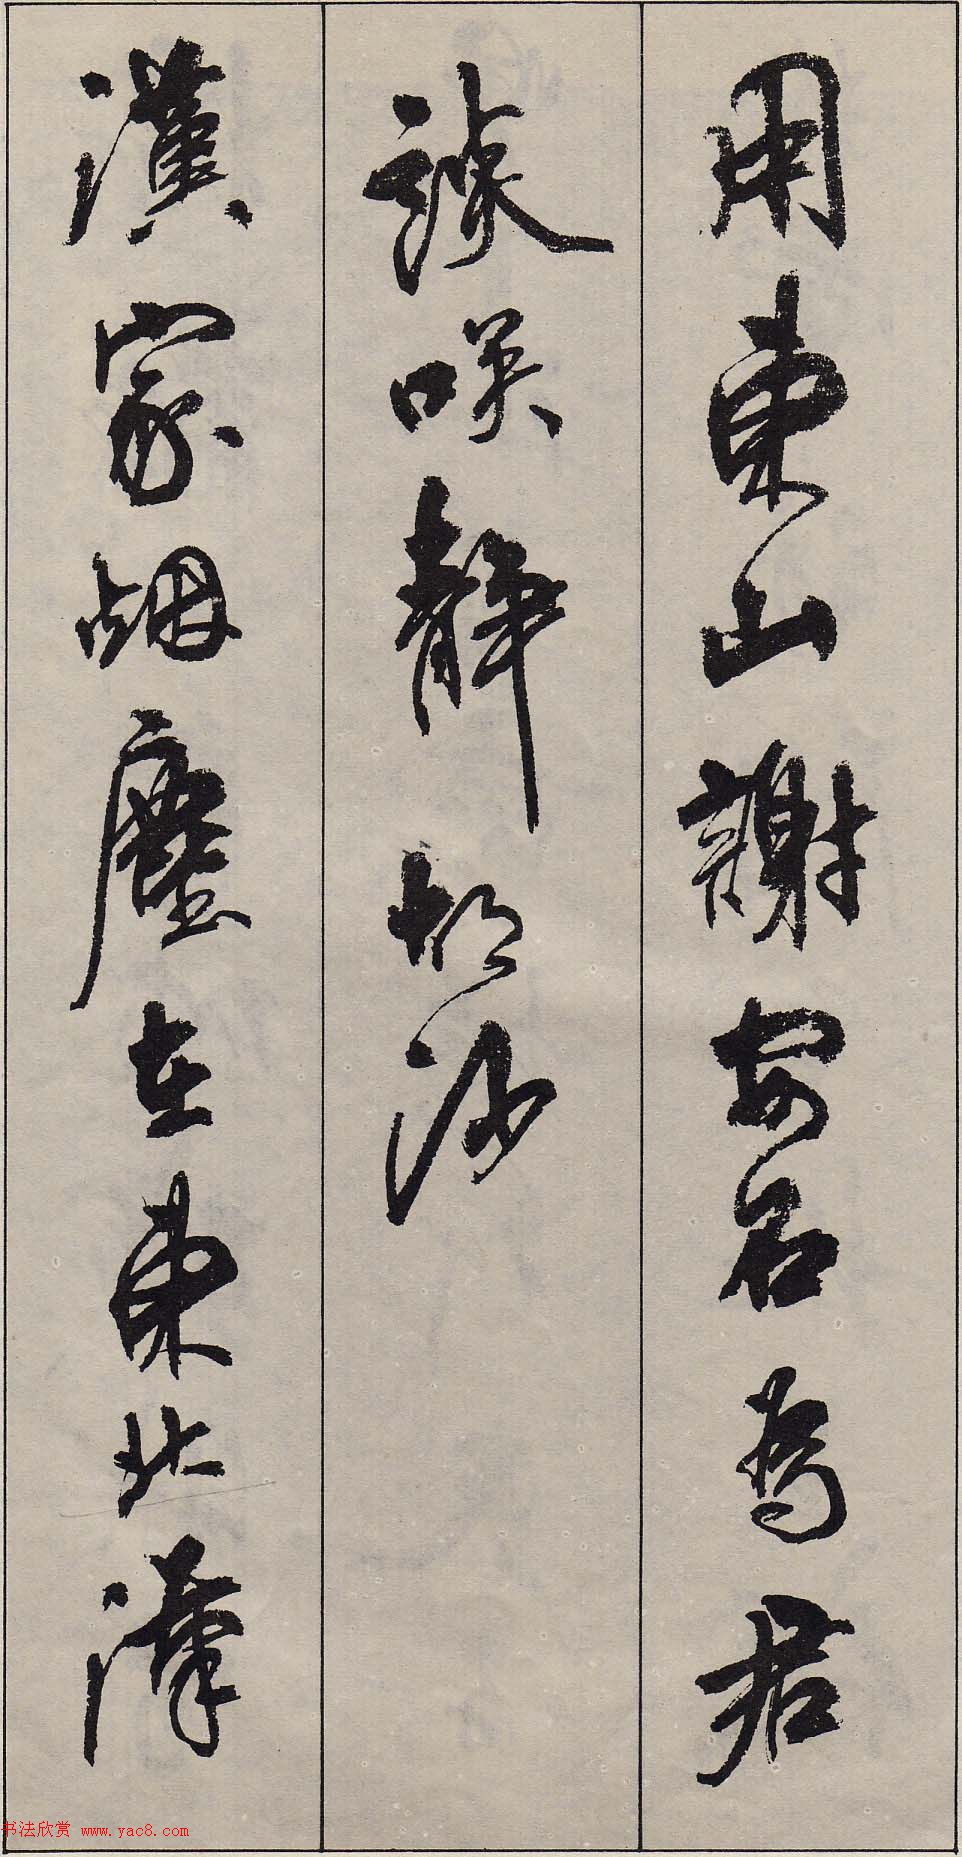 用東山謝安石為君
談咲静胡沙
漢家烟塵在東北漢
书法欣赏 www.yac8.com